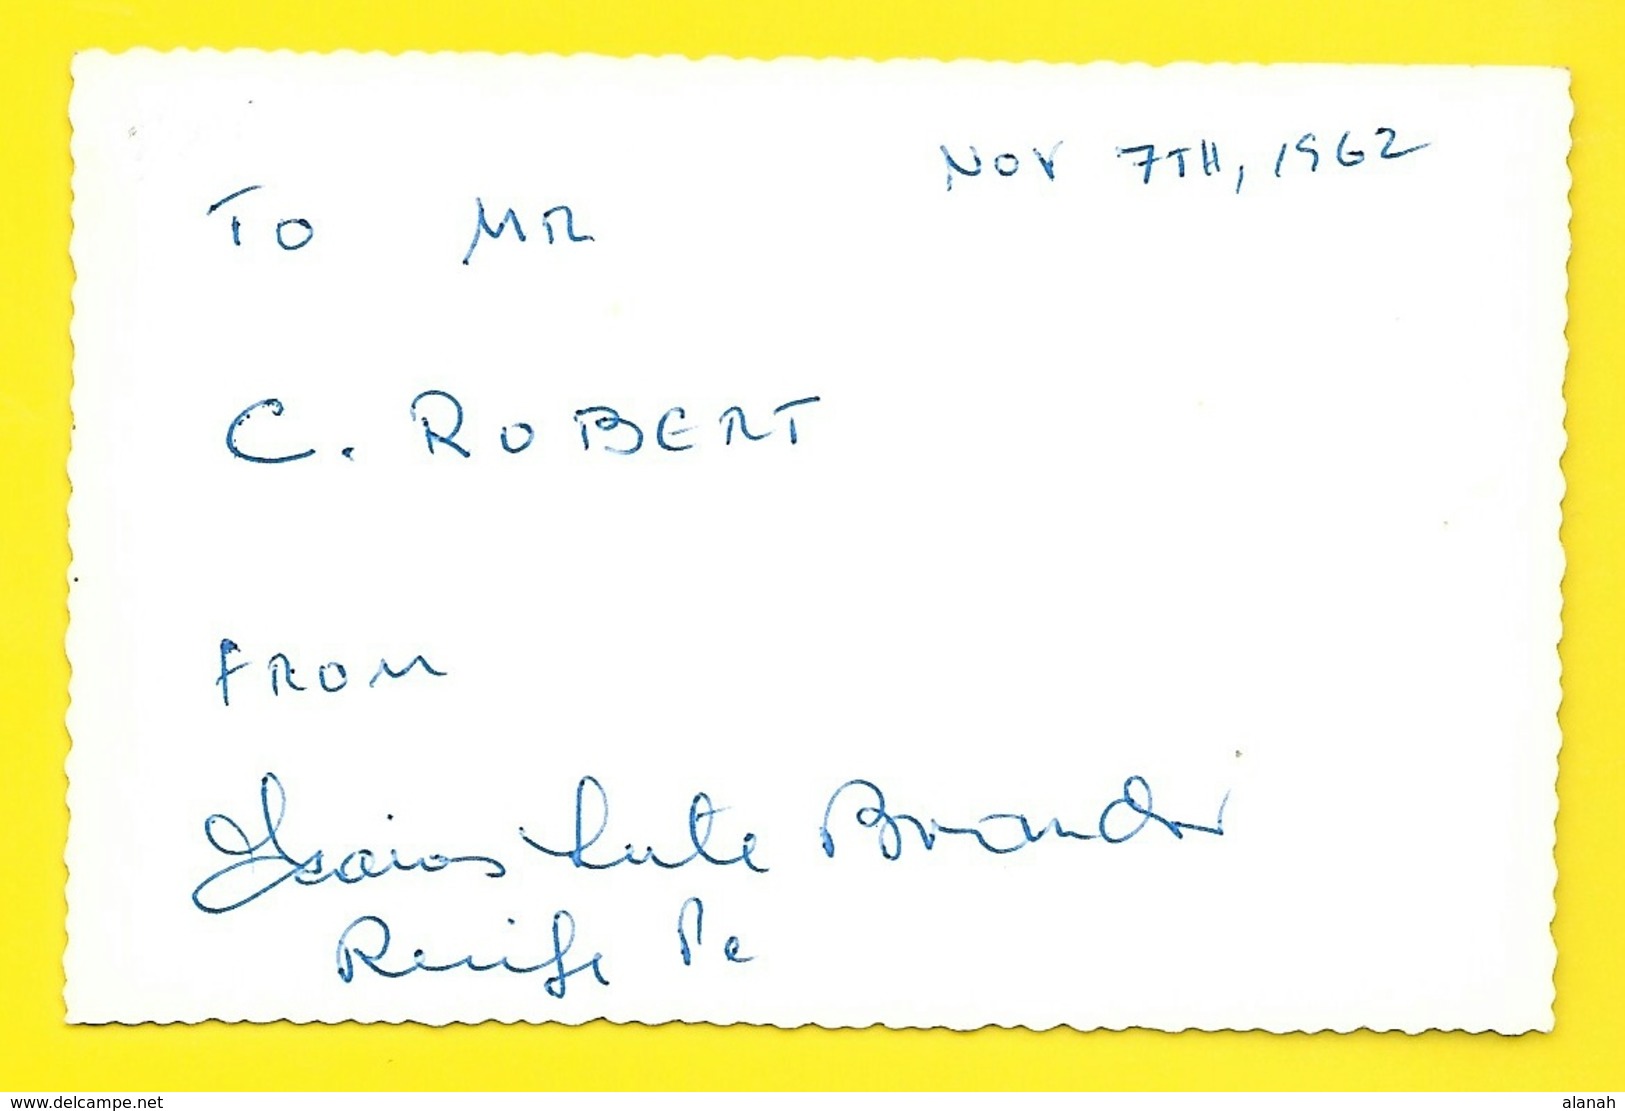 NOV 7TH, 1962
TO MR
C. ROBERT
FROM
Isaias Leite
Recife Pe
www.delcampe.net
alanah